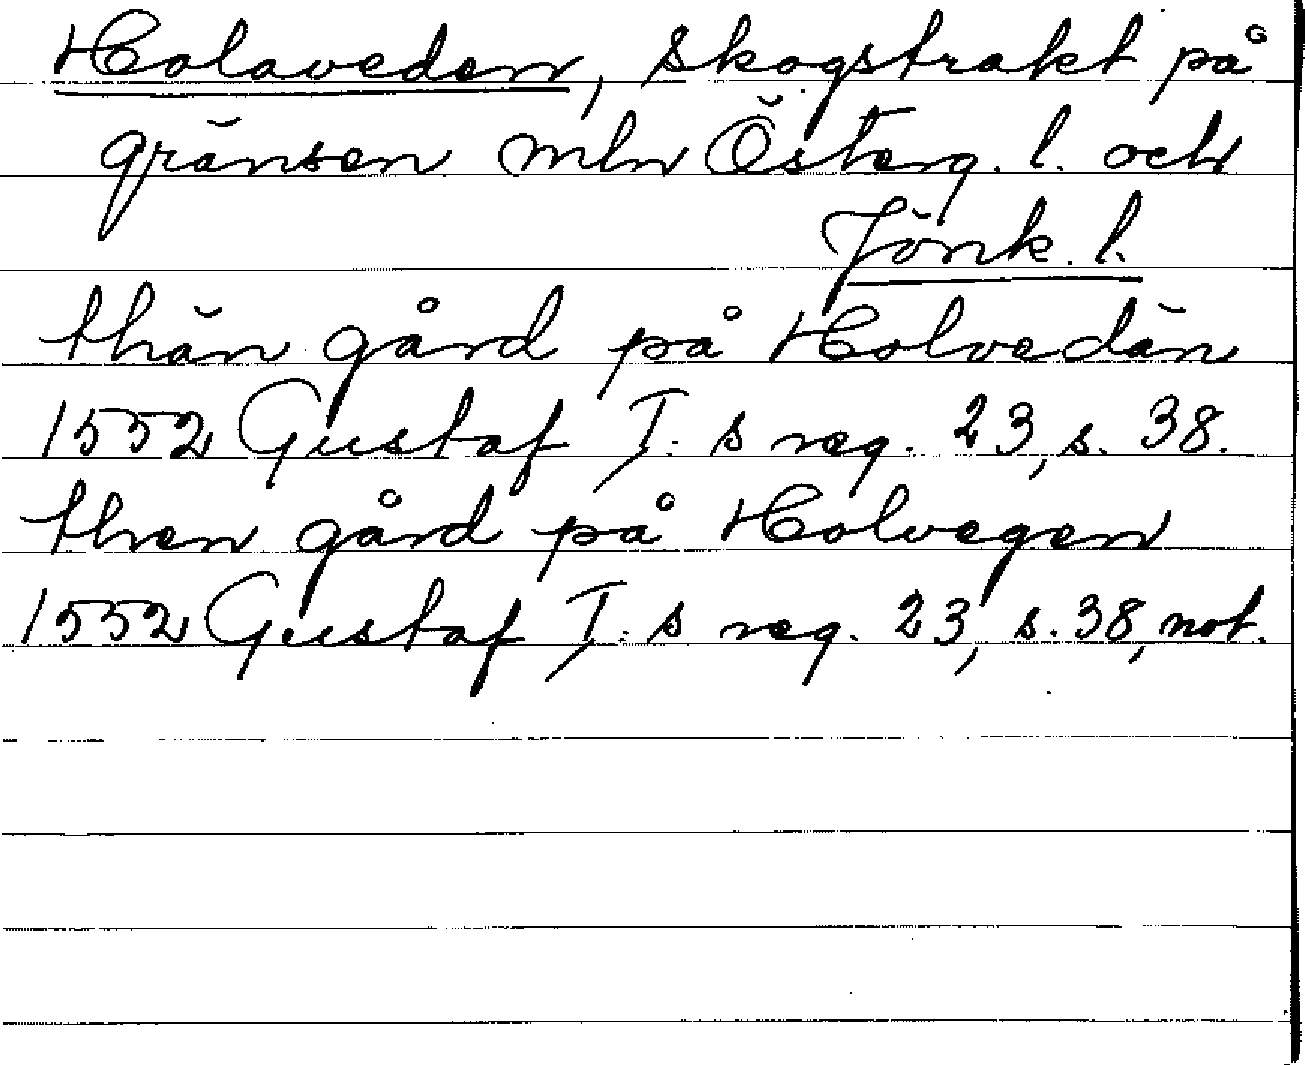 Holaveden, skogstrakt på
gränsen mln Österg. l. och
Jönk. l.
thän gård på Holvedän
1552 Gustaf I: s reg. 23, s. 38.
then gård på Holvegen
1552 Gustaf I: s reg. 23, s. 38, not.